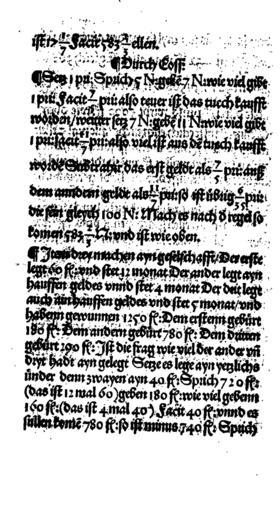 ist 17 1/7 Facit 583 1/3 ellen.
¶ Durch Coss
¶ Setz 1 pri: Sprich 5 N: gebē 7 N: wie viel gibt
1 pri: Facit 7/5 pri: also teuer ist das tuech kaufft
worden/ weitter setz 7 N: gebē 11 N: wie viel gibt
1 pri: facit 11/7 pri: also viel ist aus dē tuech kaufft
wordē Subtrahir das erst geldt als 7/5 pri: auß
dem anndern gelde als 11/7 pri: so ist übrig 6/35 pri:
die sein gleych 100 N: Mach es nach d regel so
komen 583 1/3 N: vnd ist wie oben.
¶ Item drey machen ayn geselschafft/ Der erste
legt 60 fl: vnd stet 12 monat Der ander legt ayn
hauffen geldes vnnd stet 4 monat Der drit legt
auch ain hauffen geldes vnd stet 5 monat/ vnd
habenn gewunnen 1250 fl: Dem erstenn gebürt
180 fl: Dem andern gebürt 780 fl: Dem dritten
gebürt 290 fl: Ist die frag wie viel der ander vñ
dryt habt ayn gelegt Setze es lege ayn yetzlichs
vnder denn zwayen ayn 40 fl: Sprich 720 fl:
(das ist 12 mal 60) geben 180 fl: wie viel gebenn
160 fl: (das ist 4 mal 40) Facit 40 fl: vnnd es
süllen komē 780 fl: so ist minus 740 fl: Sprich